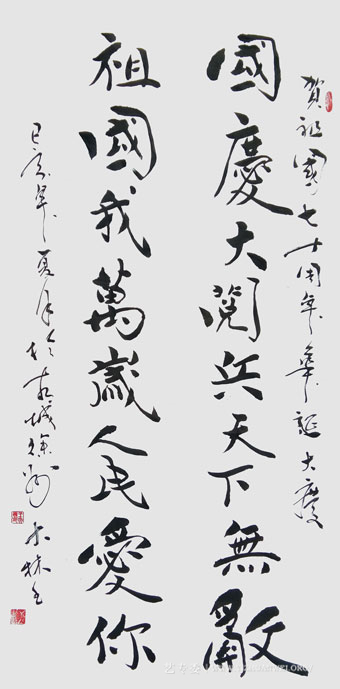 賀祖國七十周年華誕大慶
國慶大閱兵天下無敵
祖國我萬歲人民愛你
己亥年夏月於古城徐州